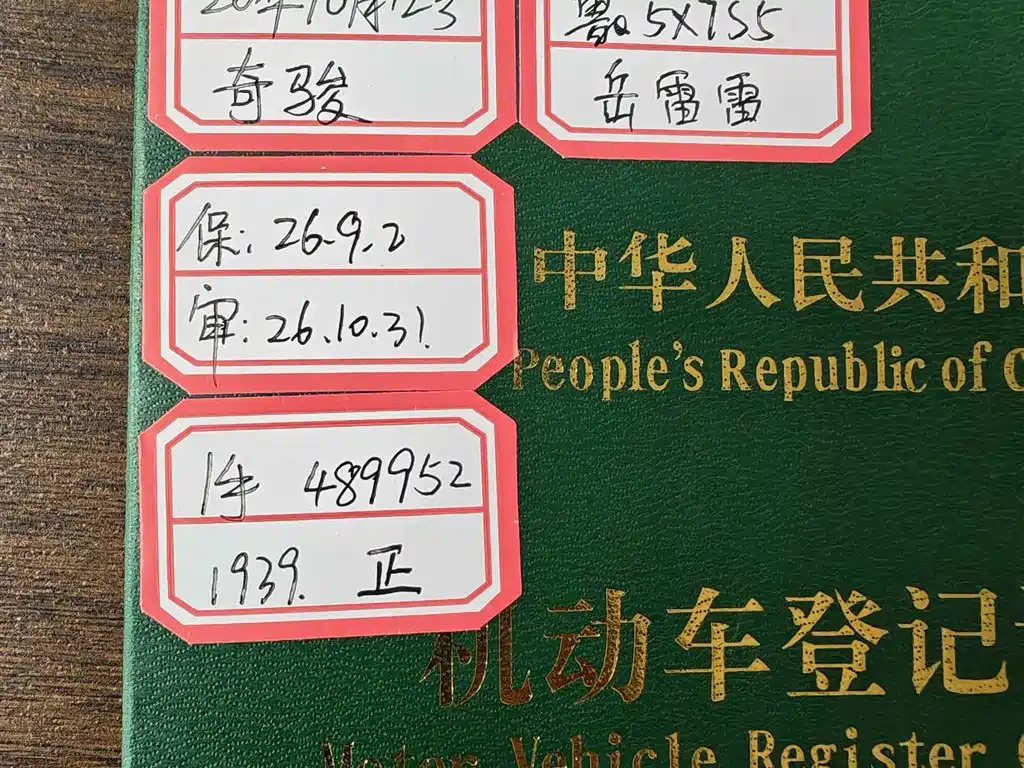 20年10月23
奇骏
5X7S5
岳雷雷
保: 26.9.2
审: 26.10.31.
1手 489952
1939. 正
中华人民共和
People's Republic of C
机动车登记
Motor Vehicle Register